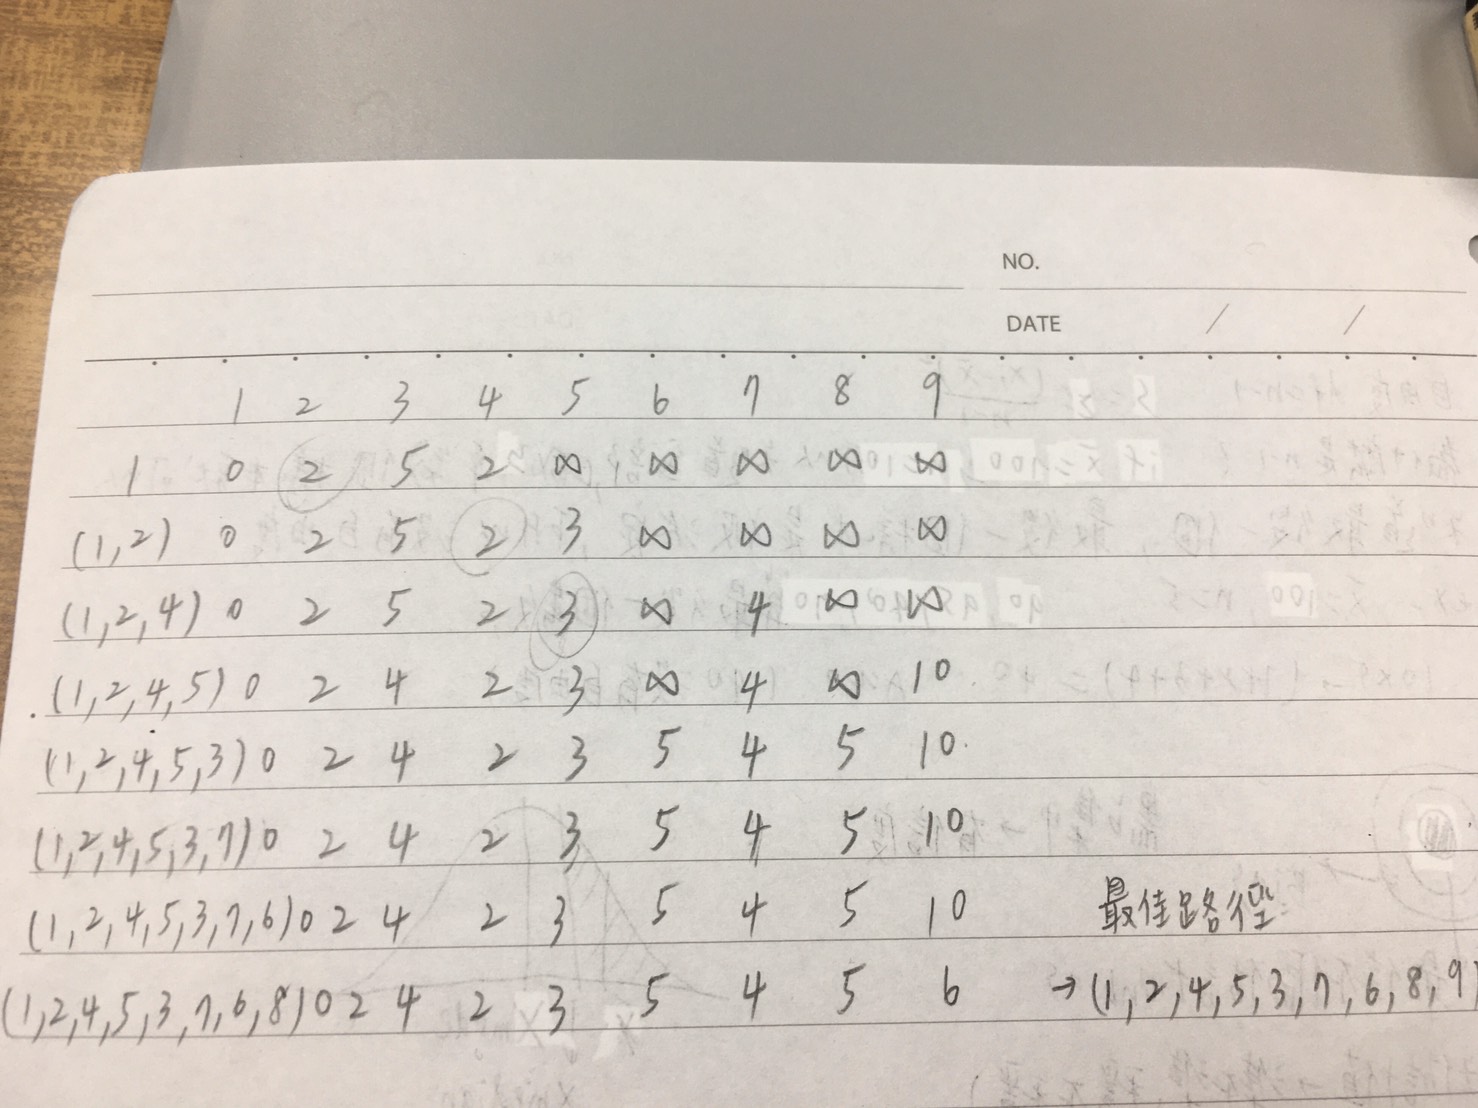 NO.
DATE / /
1 2 3 4 5 6 7 8 9
1 0 2 5 2 ∞ ∞ ∞ ∞ ∞
(1,2) 0 2 5 2 3 ∞ ∞ ∞ ∞
(1,2,4) 0 2 5 2 3 ∞ 4 ∞ ∞
(1,2,4,5) 0 2 4 2 3 ∞ 4 ∞ 10
(1,2,4,5,3) 0 2 4 2 3 5 4 5 10
(1,2,4,5,3,7) 0 2 4 2 3 5 4 5 10
(1,2,4,5,3,7,6) 0 2 4 2 3 5 4 5 10 最佳路徑
(1,2,4,5,3,7,6,8) 0 2 4 2 3 5 4 5 6 →(1,2,4,5,3,7,6,8,9)